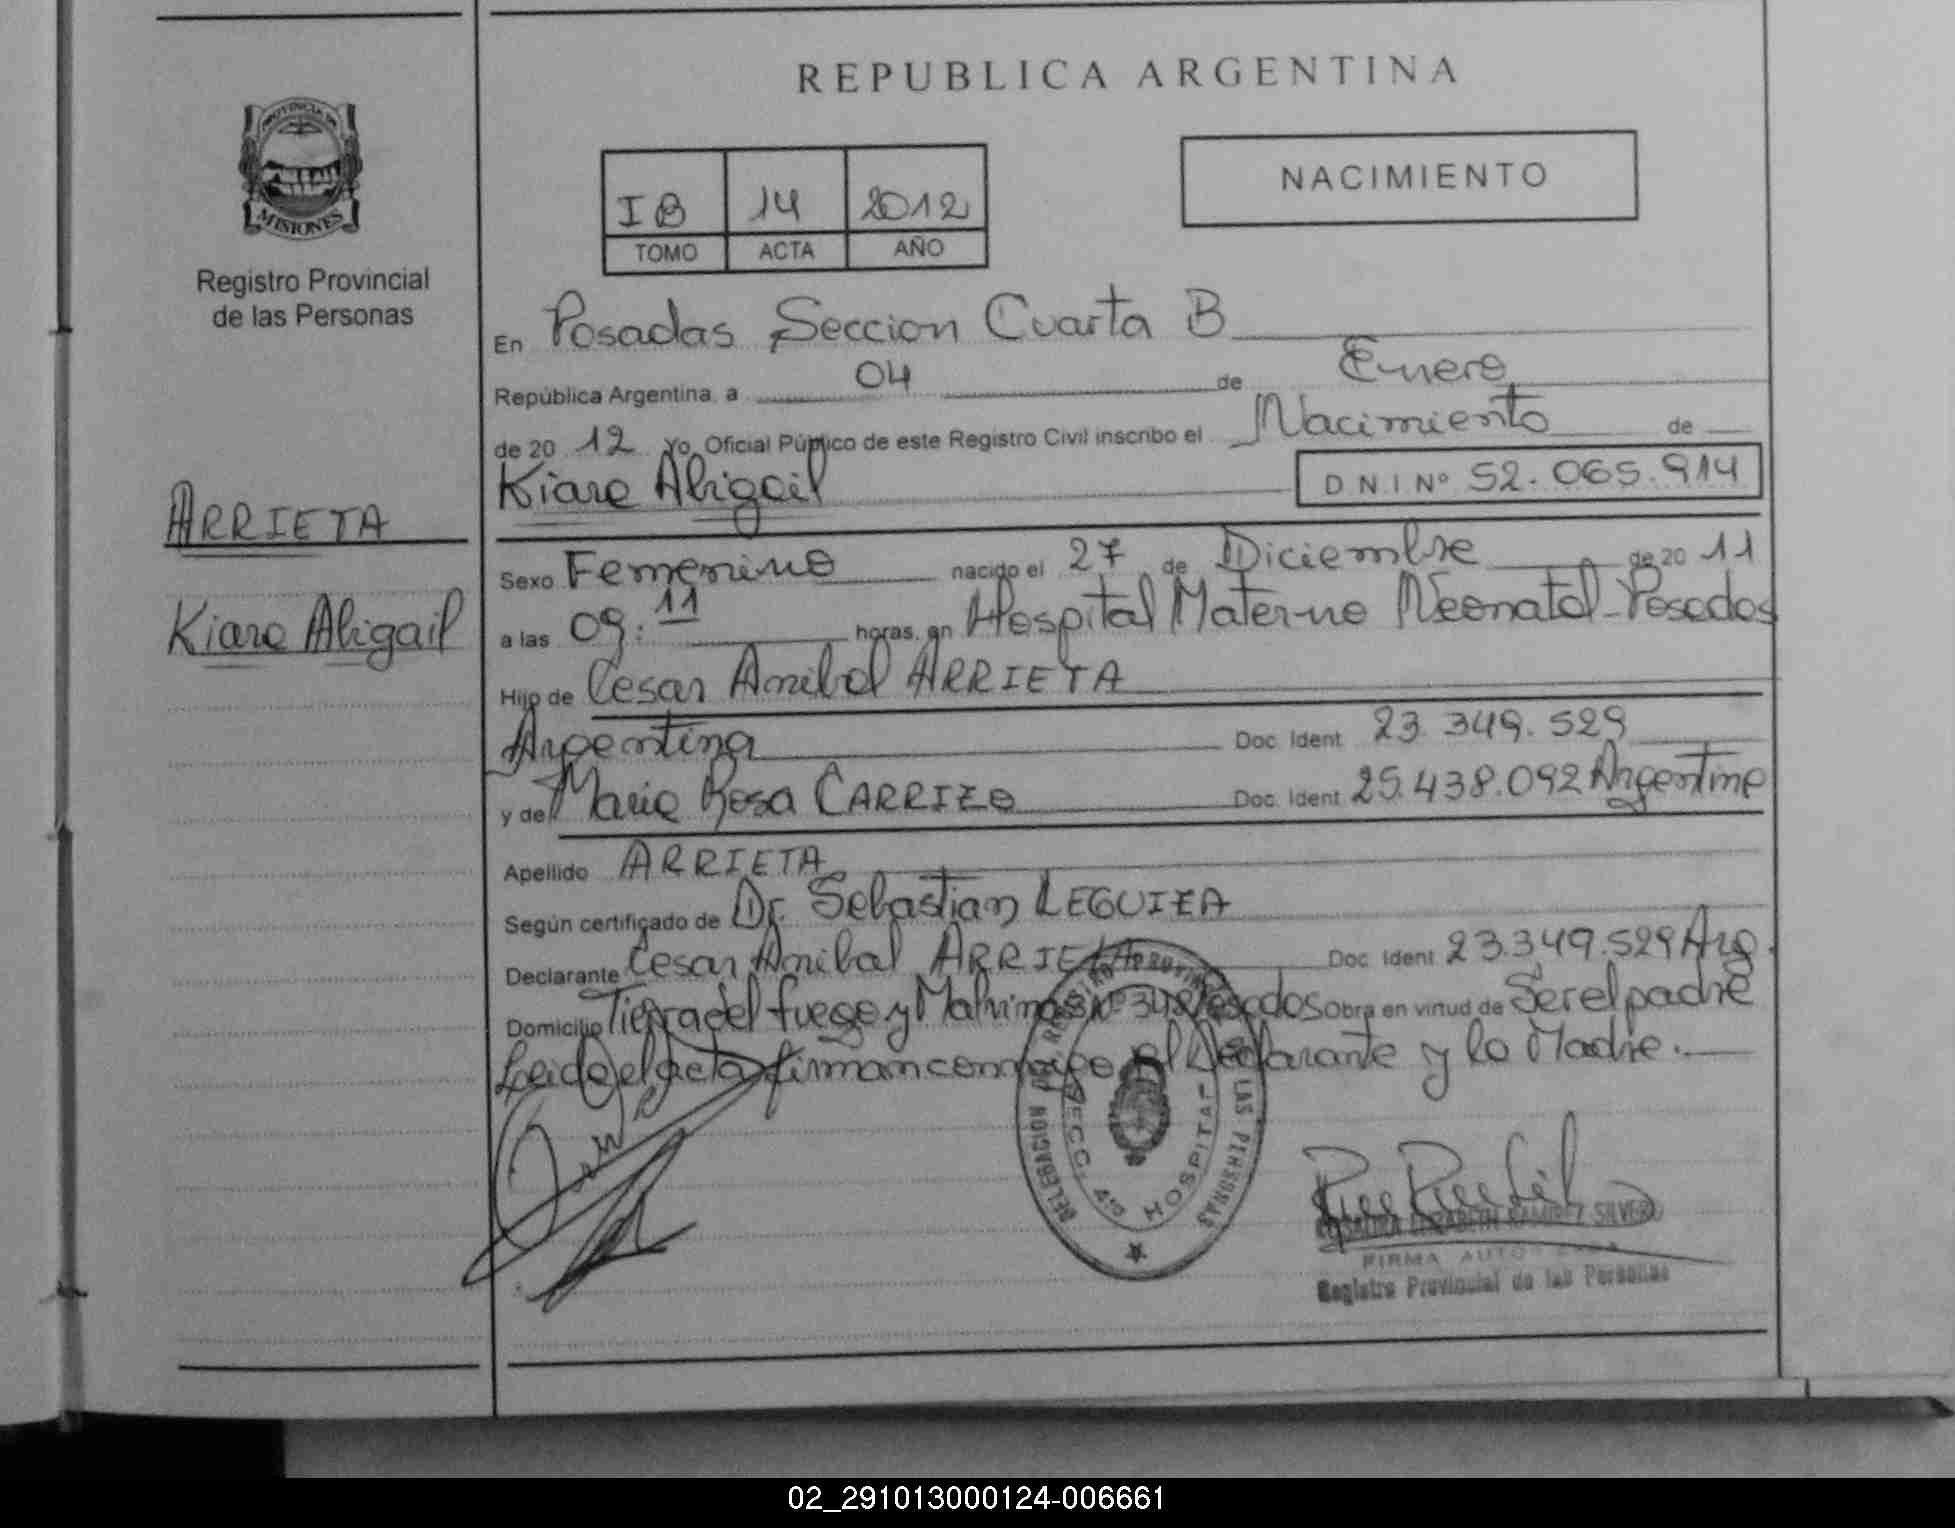 REPUBLICA ARGENTINA
PROVINCIA DE
MISIONES
Registro Provincial
de las Personas
NACIMIENTO
IB 14 2012
TOMO ACTA AÑO
En Posadas Seccion Cuarta B
República Argentina, a 04 de Enero
de 20 12 Yo, Oficial Público de este Registro Civil inscribo el Nacimiento de
Kiara Abigail D.N.I Nº 52.065.914
ARRIETA
Kiara Abigail
Sexo Femenino nacido el 27 de Diciembre de 20 11
a las 09:11 horas, en Hospital Materno Neonatal-Posadas
Hijo de Cesar Anibal ARRIETA
Argentina Doc. Ident. 23.349.529
y de Maria Rosa CARRIZO Doc. Ident. 25.438.092 Argentina
Apellido ARRIETA
Según certificado de Dr. Sebastian LEGUIZA
Declarante Cesar Anibal ARRIETA Doc. Ident. 23.349.529 Arg.
Domicilio Tierra del fuego y Malvinas Nº Posadas Obra en virtud de Ser el padre
Leida el acta firman conmigo el Declarante y la Madre.
DELEGACION DEL REGISTRO PROVINCIAL DE LAS PERSONAS
SECC. 4º B HOSPITAL
ELIZABETH RAMIREZ SILVERO
FIRMA AUTORIZADA
Registro Provincial de las Personas
02_291013000124-006661